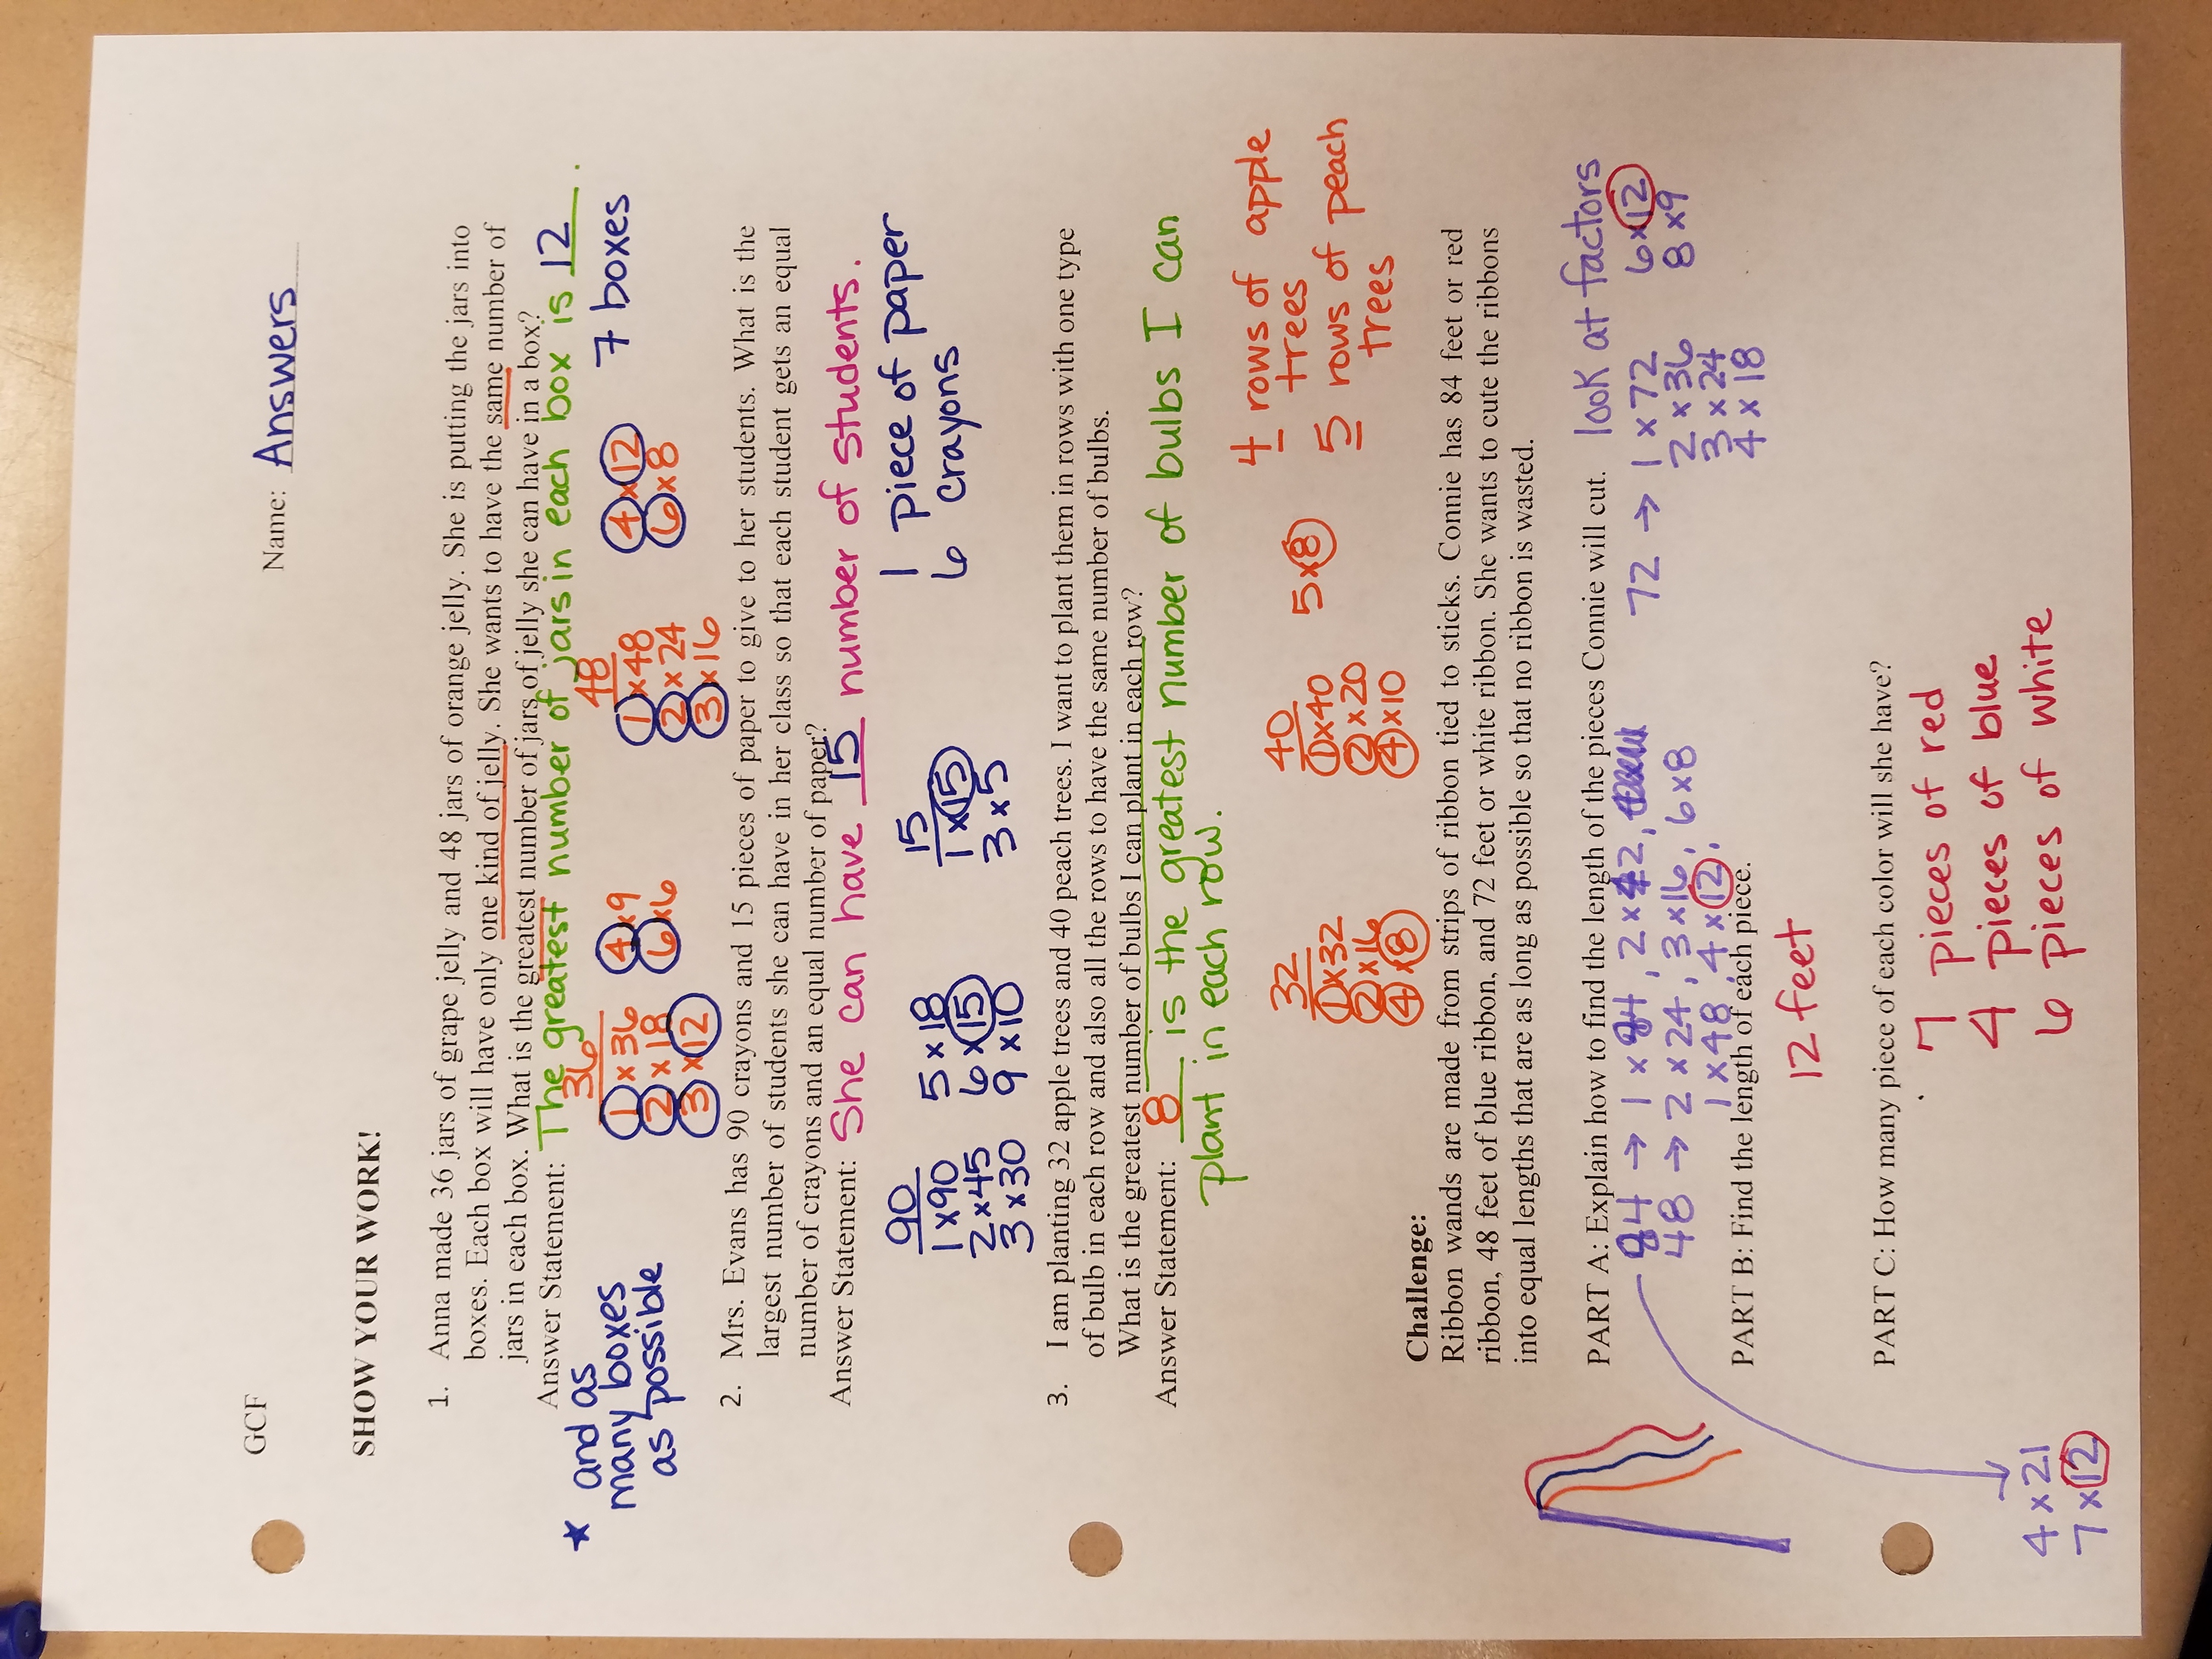 GCF
Name: Answers
SHOW YOUR WORK!
1. Anna made 36 jars of grape jelly and 48 jars of orange jelly. She is putting the jars into
boxes. Each box will have only one kind of jelly. She wants to have the same number of
jars in each box. What is the greatest number of jars of jelly she can have in a box?
Answer Statement: The greatest number of jars in each box is 12.
* and as
many boxes
as possible
36
1 x 36
2 x 18
3 x 12
4 x 9
6 x 6
48
1 x 48
2 x 24
3 x 16
4 x 12
6 x 8
7 boxes
2. Mrs. Evans has 90 crayons and 15 pieces of paper to give to her students. What is the
largest number of students she can have in her class so that each student gets an equal
number of crayons and an equal number of paper?
Answer Statement: She can have 15 number of students.
90
1 x 90
2 x 45
3 x 30
5 x 18
6 x 15
9 x 10
15
1 x 15
3 x 5
1 piece of paper
6 crayons
3. I am planting 32 apple trees and 40 peach trees. I want to plant them in rows with one type
of bulb in each row and also all the rows to have the same number of bulbs.
What is the greatest number of bulbs I can plant in each row?
Answer Statement: 8 is the greatest number of bulbs I can
plant in each row.
32
1 x 32
2 x 16
4 x 8
40
1 x 40
2 x 20
4 x 10
5 x 8
4 rows of apple
trees
5 rows of peach
trees
Challenge:
Ribbon wands are made from strips of ribbon tied to sticks. Connie has 84 feet or red
ribbon, 48 feet of blue ribbon, and 72 feet or white ribbon. She wants to cute the ribbons
into equal lengths that are as long as possible so that no ribbon is wasted.
PART A: Explain how to find the length of the pieces Connie will cut. look at factors
84 → 1 x 84, 2 x 42,
48 → 2 x 24, 3 x 16, 6 x 8
1 x 48, 4 x 12,
72 → 1 x 72
2 x 36
3 x 24
4 x 18
6 x 12
8 x 9
PART B: Find the length of each piece.
12 feet
PART C: How many piece of each color will she have?
7 pieces of red
4 pieces of blue
6 pieces of white
4 x 21
7 x 12